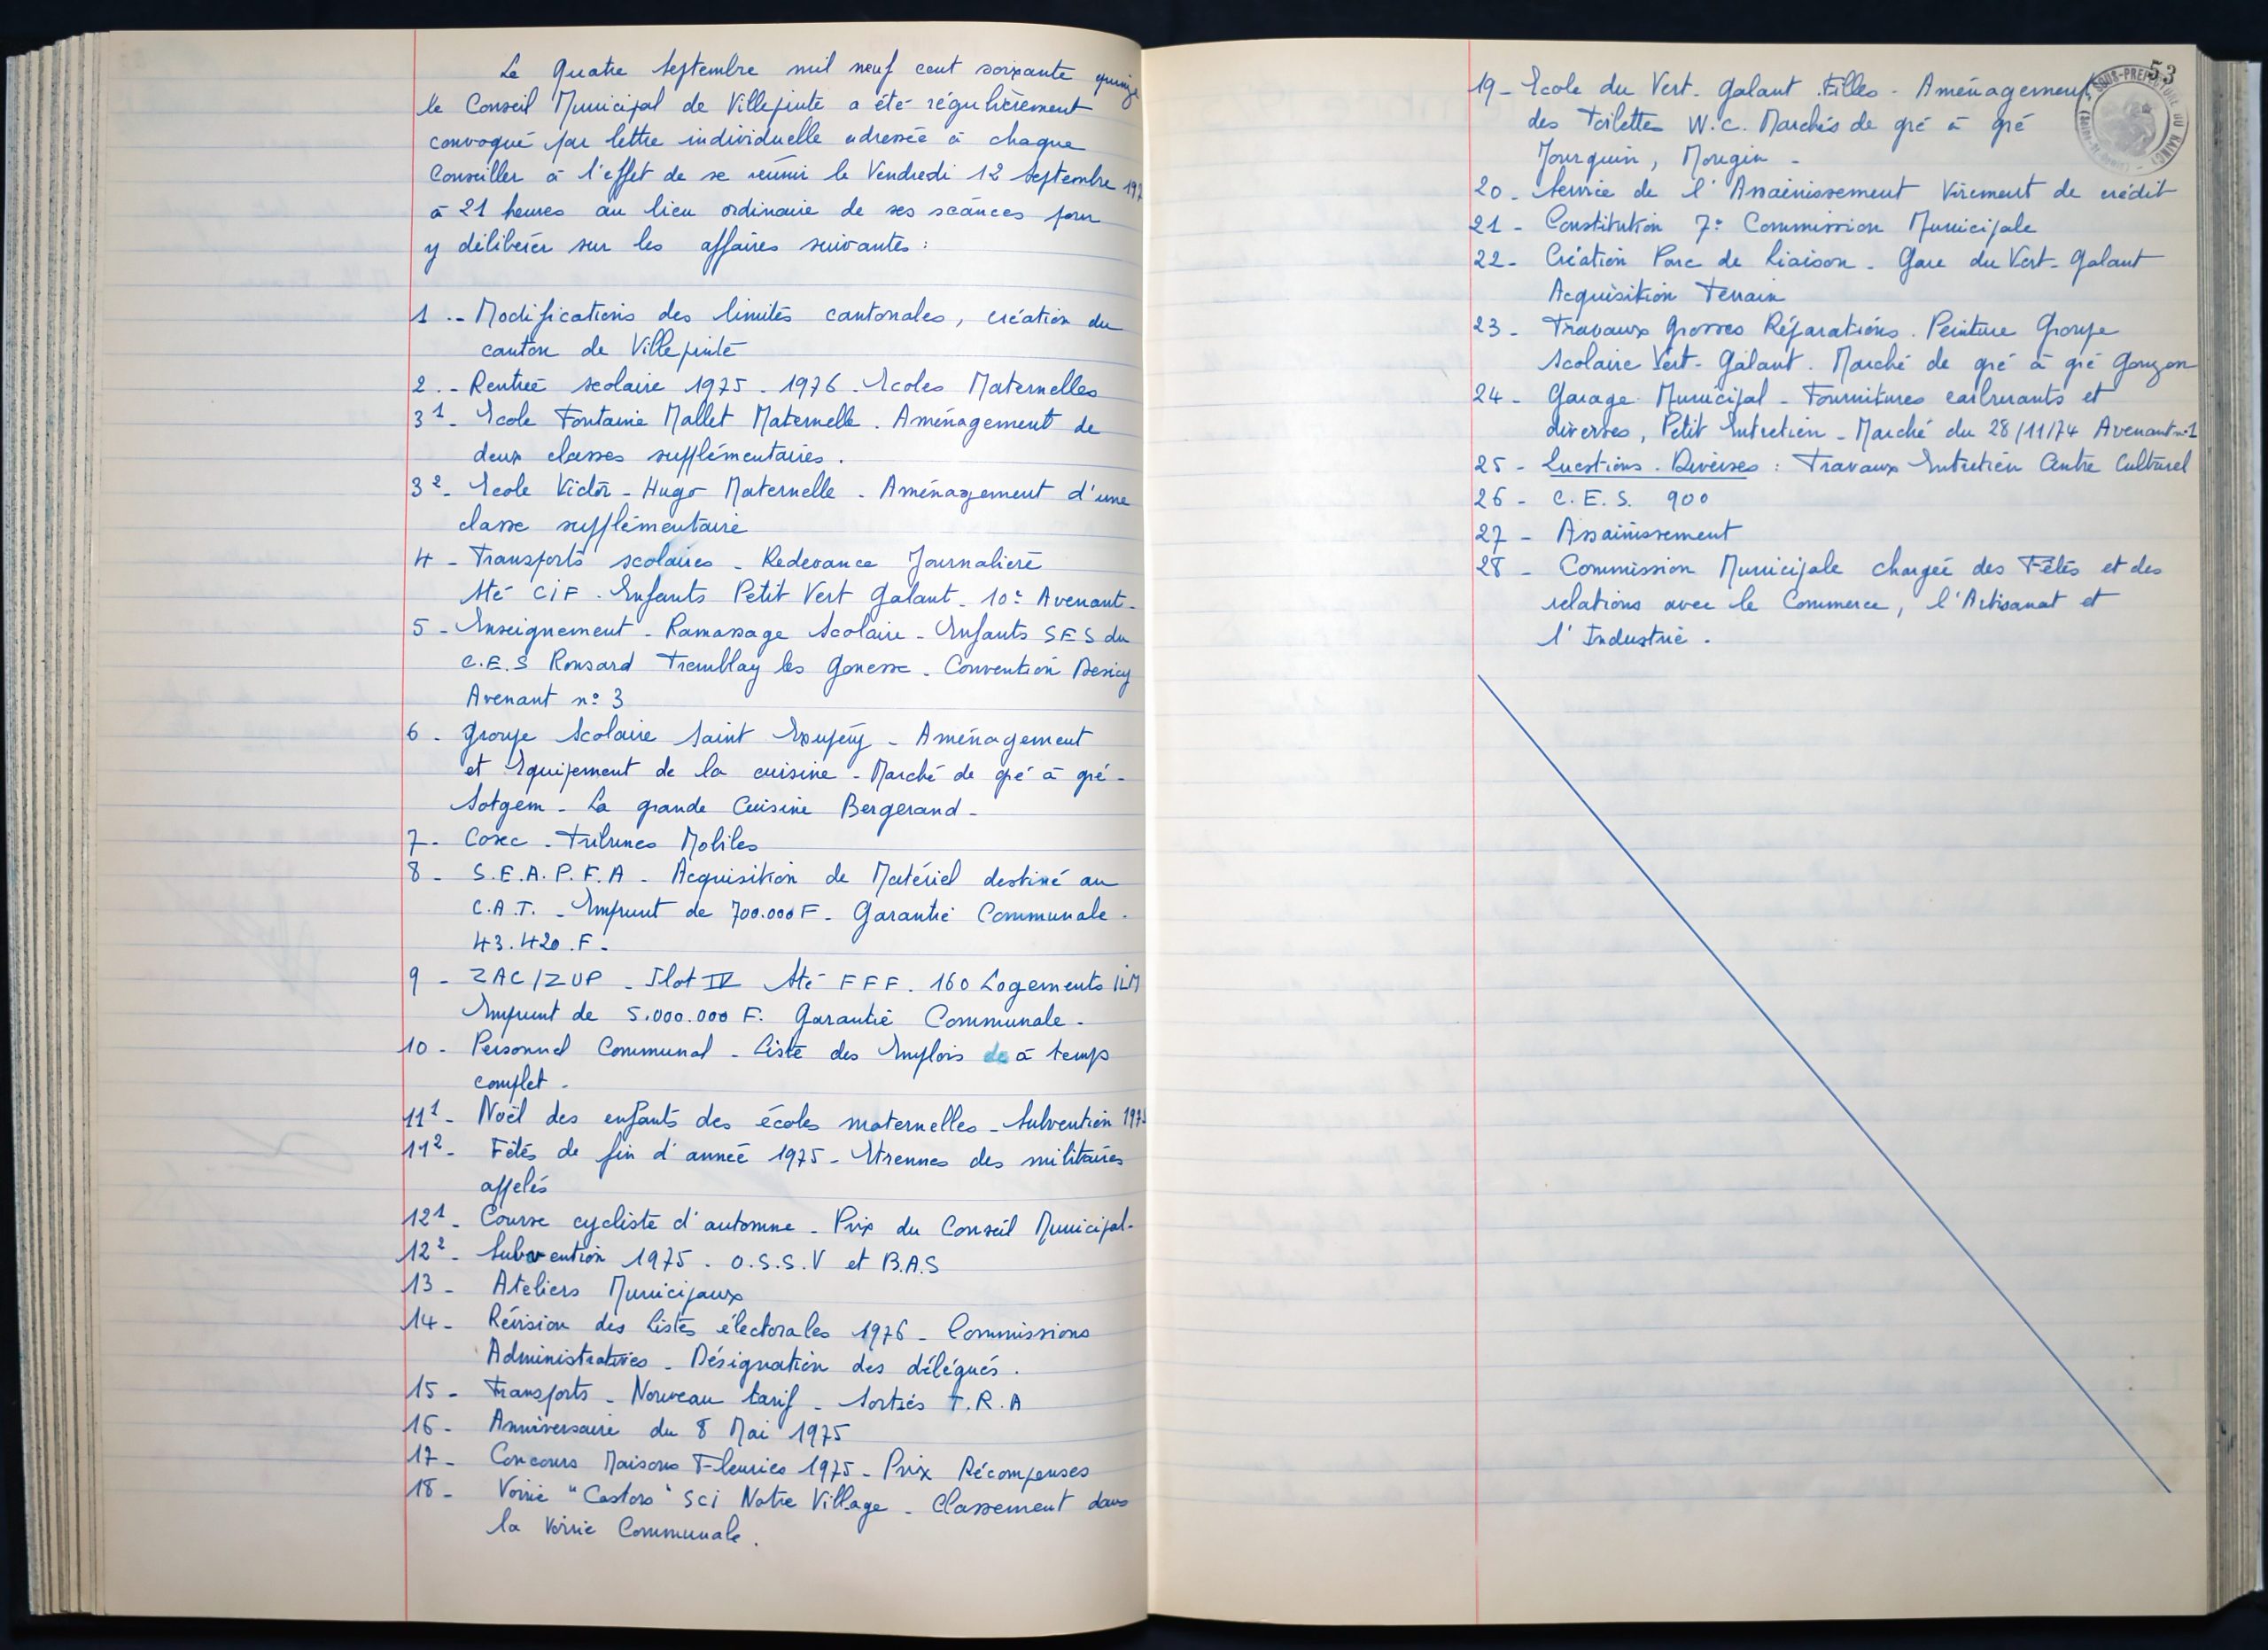 Le Quatre Septembre mil neuf cent soixante quinze
le Conseil Municipal de Villepinte a été régulièrement
convoqué par lettre individuelle adressée à chaque
Conseiller à l'effet de se réunir le Vendredi 12 Septembre 197
à 21 heures au lieu ordinaire de ses séances pour
y délibérer sur les affaires suivantes :
1 .- Modifications des limites cantonales, création du
canton de Villepinte
2 .- Rentrée scolaire 1975 - 1976 - Ecoles Maternelles
3¹- Ecole Fontaine Mallet Maternelle . Aménagement de
deux classes supplémentaires .
3²- Ecole Victor - Hugo Maternelle - Aménagement d'une
classe supplémentaire
4 - Transports scolaires - Redevance Journalière
Sté CIF . Enfants Petit Vert Galant - 10e Avenant -
5 - Enseignement - Ramassage Scolaire - Enfants SES du
C.E.S Ronsard Tremblay les Gonesse . Convention
Avenant n° 3
6 - Groupe Scolaire Saint Exupéry - Aménagement
et Equipement de la cuisine - Marché de gré à gré -
Sotgem - La grande Cuisine Bergerand -
7 - Cosec - Tribunes Mobiles
8 - S.E.A.P.F.A - Acquisition de Matériel destiné au
C.A.T. - Emprunt de 700.000 F - Garantie Communale -
43.420.F -
9 - ZAC/ZUP - Ilot IV Sté FFF . 160 Logements ILM
Emprunt de 5.000.000 F. Garantie Communale -
10 - Personnel Communal - Liste des Emplois de à temps
complet -
11¹- Noël des enfants des écoles maternelles - Subvention 1975
11²- Fêtes de fin d'année 1975 - Etrennes des militaires
appelés
12¹- Course cycliste d'automne - Prix du Conseil Municipal -
12²- Subvention 1975 . O.S.S.V et B.A.S
13 - Ateliers Municipaux
14 - Révision des Listes électorales 1976 - Commissions
Administratives - Désignation des délégués .
15 - Transports - Nouveau tarif - Sorties T.R.A
16 - Anniversaire du 8 Mai 1975
17 - Concours Maisons Fleuries 1975 - Prix Récompenses
18 - Voirie "Castors" SCI Notre Village - Classement dans
la Voirie Communale .
53
SOUS-PREFECTURE DU RAINCY
19 - Ecole du Vert - Galant Filles - Aménagement
des Toilettes W.C. Marchés de gré à gré
Jourquin, Mougin -
20 - Service de l'Assainissement Virement de crédit
21 - Constitution 7e Commission Municipale
22 - Création Parc de Liaison - Gare du Vert - Galant
Acquisition Terrain
23 - Travaux Grosses Réparations . Peinture Groupe
Scolaire Vert - Galant . Marché de gré à gré Gonzon
24 - Garage Municipal - Fournitures carburants et
diverses, Petit Entretien - Marché du 28/11/74 Avenant n°1
25 - Questions Diverses : Travaux Entretien Centre Culturel
26 - C.E.S. 900
27 - Assainissement
28 - Commission Municipale chargée des Fêtes et des
relations avec le Commerce, l'Artisanat et
l'Industrie .